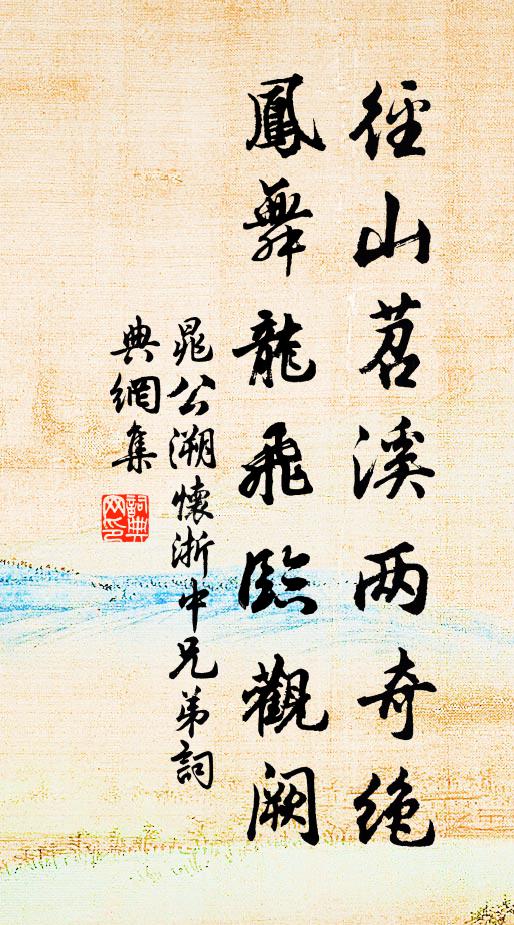 徑山苕溪两奇絶
鳳舞龍飛臨觀闕
晁公溯懷浙中兄弟詞
典網集
詞典网印